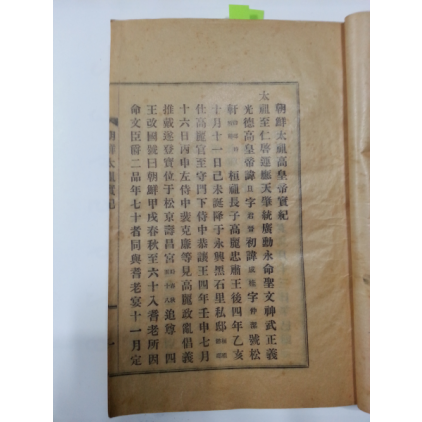 朝鮮太祖高皇帝實紀
太祖至仁啓運應天肇統廣勳永命聖文神武正義
光德高皇帝諱旦字君晉初諱成桂字仲潔號松
軒 桓祖長子高麗忠肅王後四年乙亥
十月十一日己未誕降于永興黑石里私邸
仕高麗官至守門下侍中恭讓王四年壬申七月
十六日丙申左侍中裴克廉等見高麗政亂倡義
推戴遂登寶位于松京壽昌宮 追尊 四
王改國號曰朝鮮甲戌春秋至六十入耆老所因
命文臣爵二品年七十者同與耆老宴十一月定
朝鮮太祖實紀
一